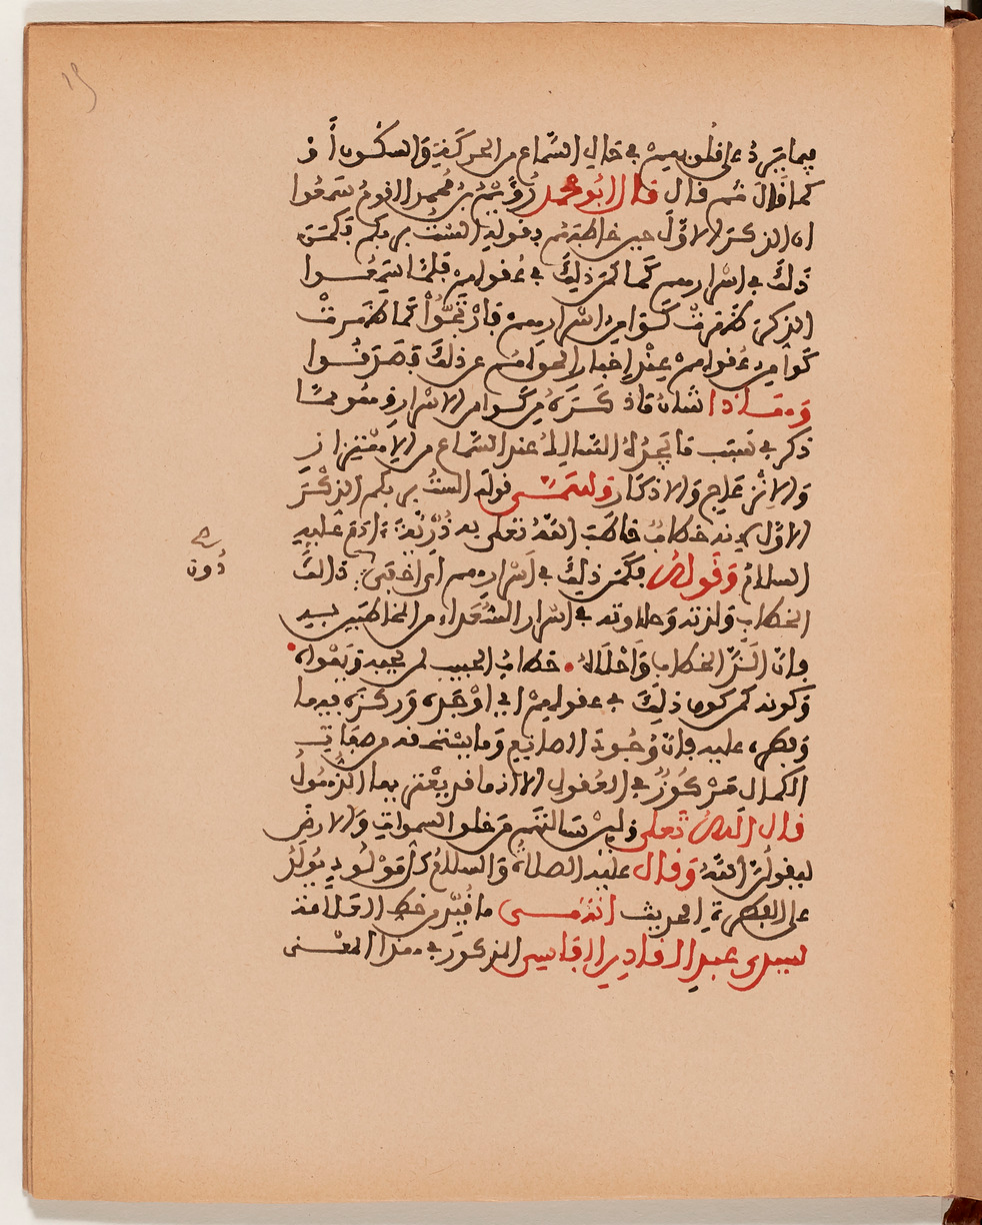 فيما يرد على قلوبهم في حال السماع من الحركة والسكون أو
كما قال ثم قال قال أبو محمد رويم بن محمد القوم سمعوا
ان الذكر الاول حين خاطبهم بقوله الست بربكم فكمن
ذلك في اسرارهم كما كمن ذلك في عقولهم فلما سمعوا
الذكر ظهرت كوامن اسرارهم فانزعجوا كما ظهرت
كوامن عقولهم عند إخبار الحق لهم عن ذلك فصدقوا
وهذا شان ما ذكره من كوامن الاسرار وهو مما
ذكر في سبب ما يجده السالك عند السماع من الاهتزاز
والانزعاج والاذكار وليسمى قوله الست بربكم الذكر
الاول لانه خطاب خاطب الله تعلى به ذرية ءادم عليه
السلام وقوله فكمن ذلك في اسرارهم أي اختفى ذلك
الخطاب ولذته وحلاوته في اسرار السعداء من المخاطبين به
فان ألذ الخطاب وأحلاه خطاب الحبيب لمن يحبه ويهواه
وكونه كمن كون ذلك في عقولهم اي اوجده وركزه فيها
وبطره عليه فان وجود الصانع وما يستحقه من صفات
الكمال مركوز في العقول الا انها قد يعتريها الذهول
قال الله تعلى ولين سالتهم من خلق السموات والارض
ليقولن الله وقال عليه الصلاة والسلام كل مولود يولد
على الفطرة الحديث انتهى ما قيد من خط العلامة
لسيدي عبد القادر الفاسي المذكور في هذا المعنى
دون